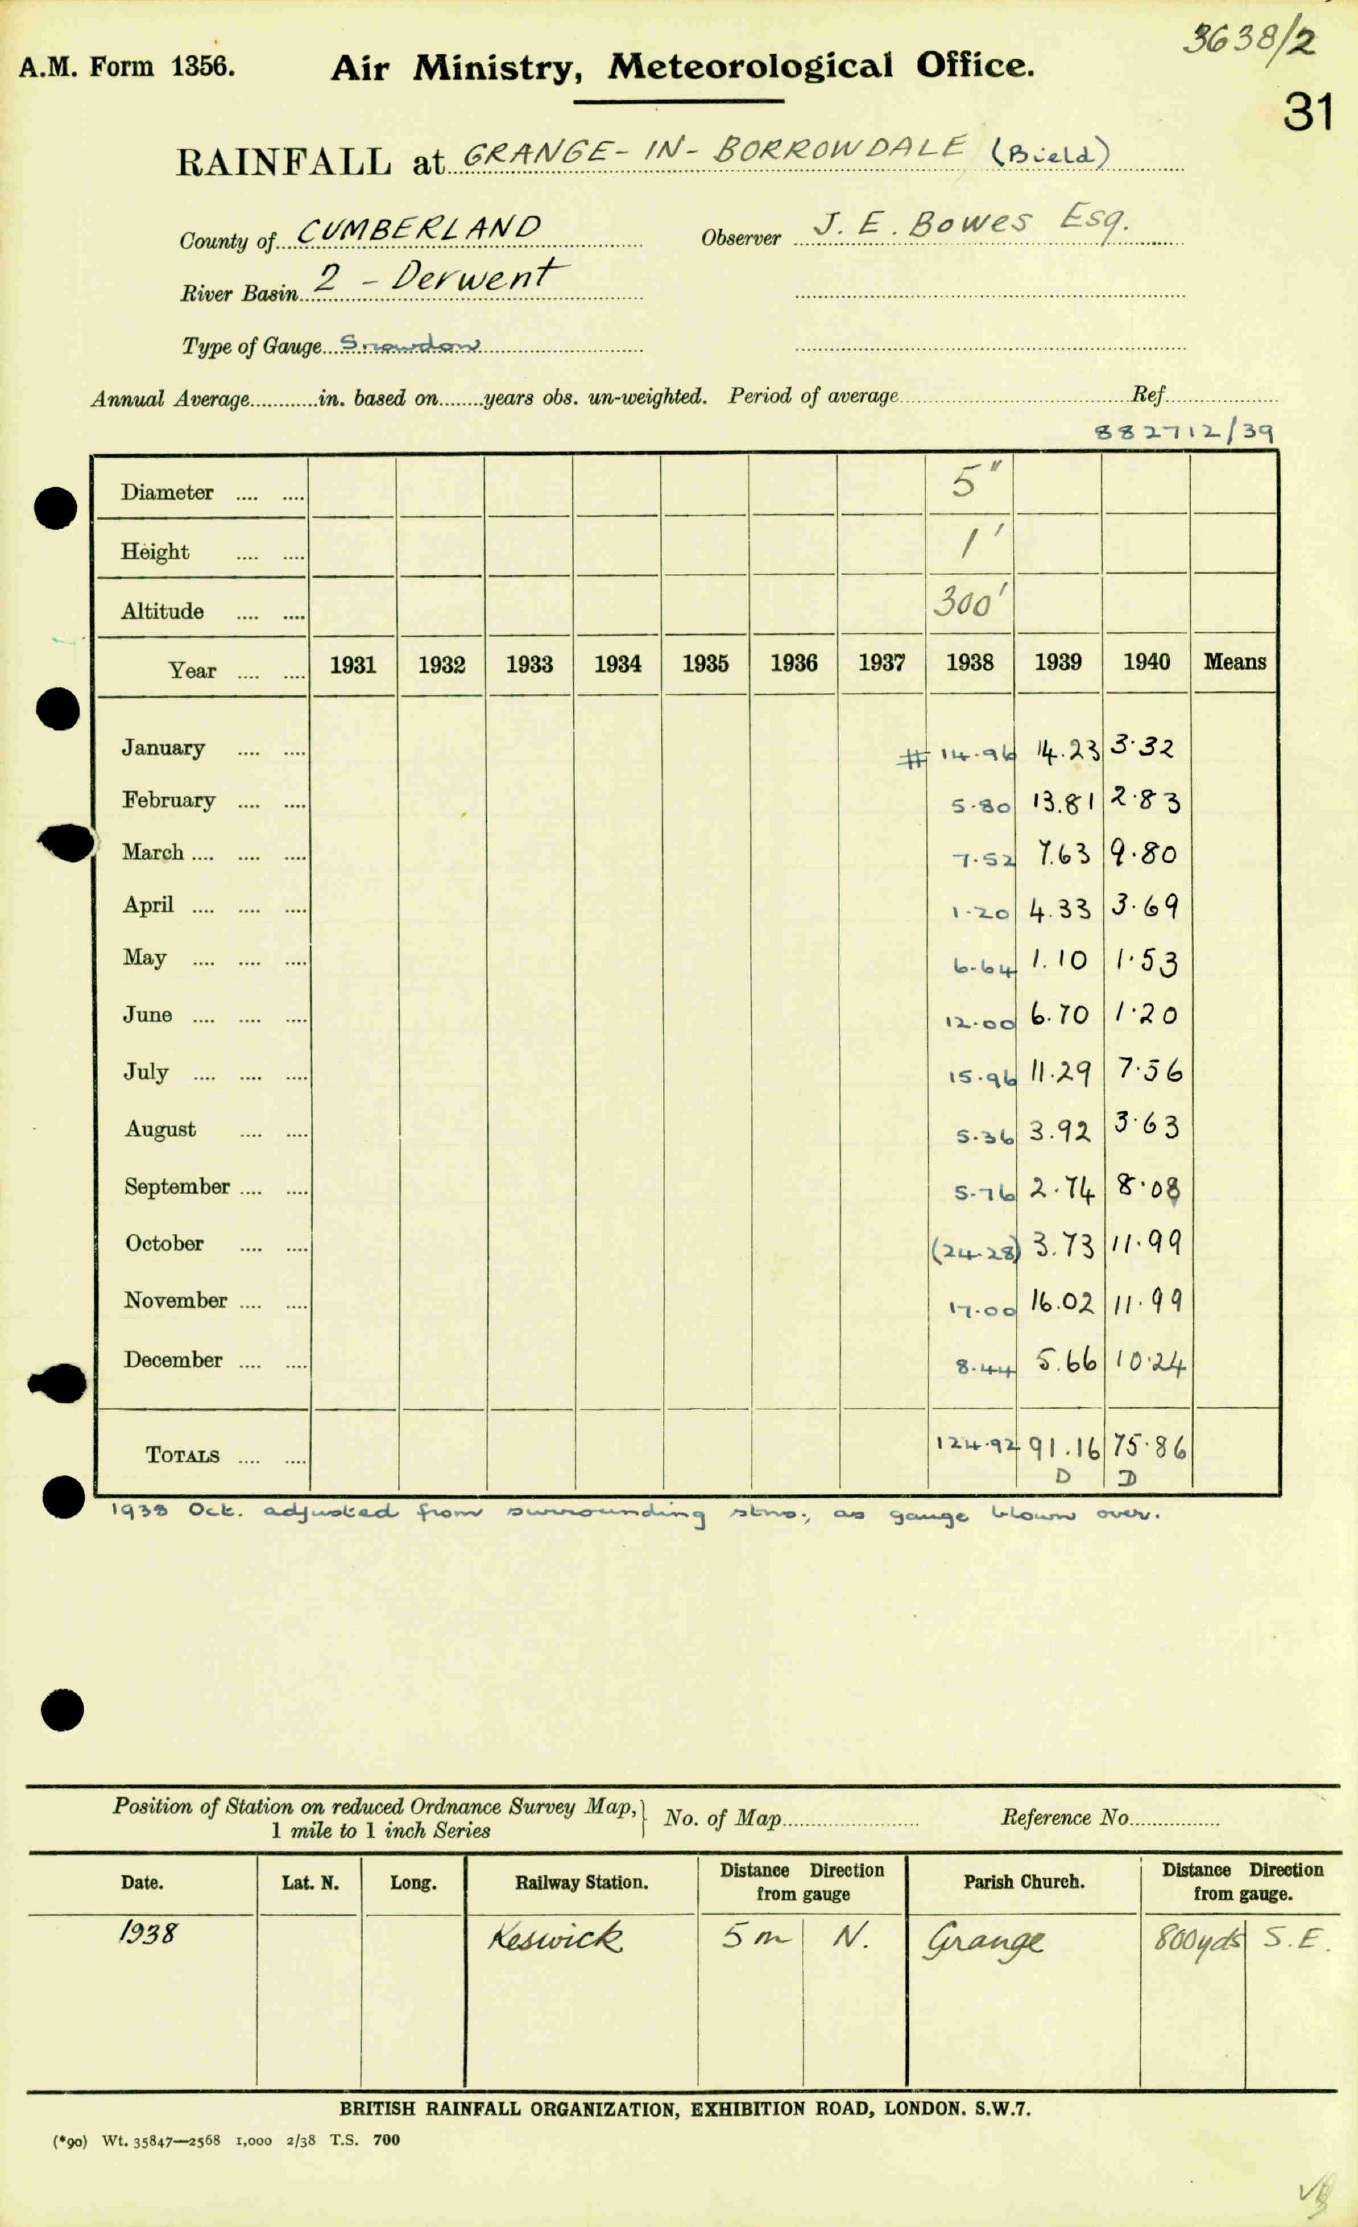 3638/2
A.M. Form 1356. Air Ministry, Meteorological Office.
31
RAINFALL at GRANGE-IN-BORROWDALE (Bield)
County of CUMBERLAND Observer J. E. Bowes Esq.
River Basin 2 - Derwent
Type of Gauge Snowdon
Annual Average............in. based on........years obs. un-weighted. Period of average............Ref............
882712/39
Diameter .... .... 5"
Height .... .... 1'
Altitude .... .... 300'
Year .... .... 1931 1932 1933 1934 1935 1936 1937 1938 1939 1940 Means
January .... .... # 14.96 14.23 3.32
February .... .... 5.80 13.81 2.83
March .... .... .... 7.52 7.63 9.80
April .... .... .... 1.20 4.33 3.69
May .... .... .... 6.64 1.10 1.53
June .... .... .... 12.00 6.70 1.20
July .... .... .... 15.96 11.29 7.56
August .... .... 5.36 3.92 3.63
September .... .... 5.76 2.74 8.08
October .... .... (24.28) 3.73 11.99
November .... .... 17.00 16.02 11.99
December .... .... 8.44 5.66 10.24
TOTALS .... .... 124.92 91.16 75.86
D D
1938 Oct. adjusted from surrounding stns., as gauge blown over.
Position of Station on reduced Ordnance Survey Map,} No. of Map............ Reference No............
1 mile to 1 inch Series
Date. Lat. N. Long. Railway Station. Distance Direction from gauge Parish Church. Distance Direction from gauge.
1938 Keswick 5 m N. Grange 800yds S.E.
BRITISH RAINFALL ORGANIZATION, EXHIBITION ROAD, LONDON. S.W.7.
(*90) Wt. 35847—2568 1,000 2/38 T.S. 700